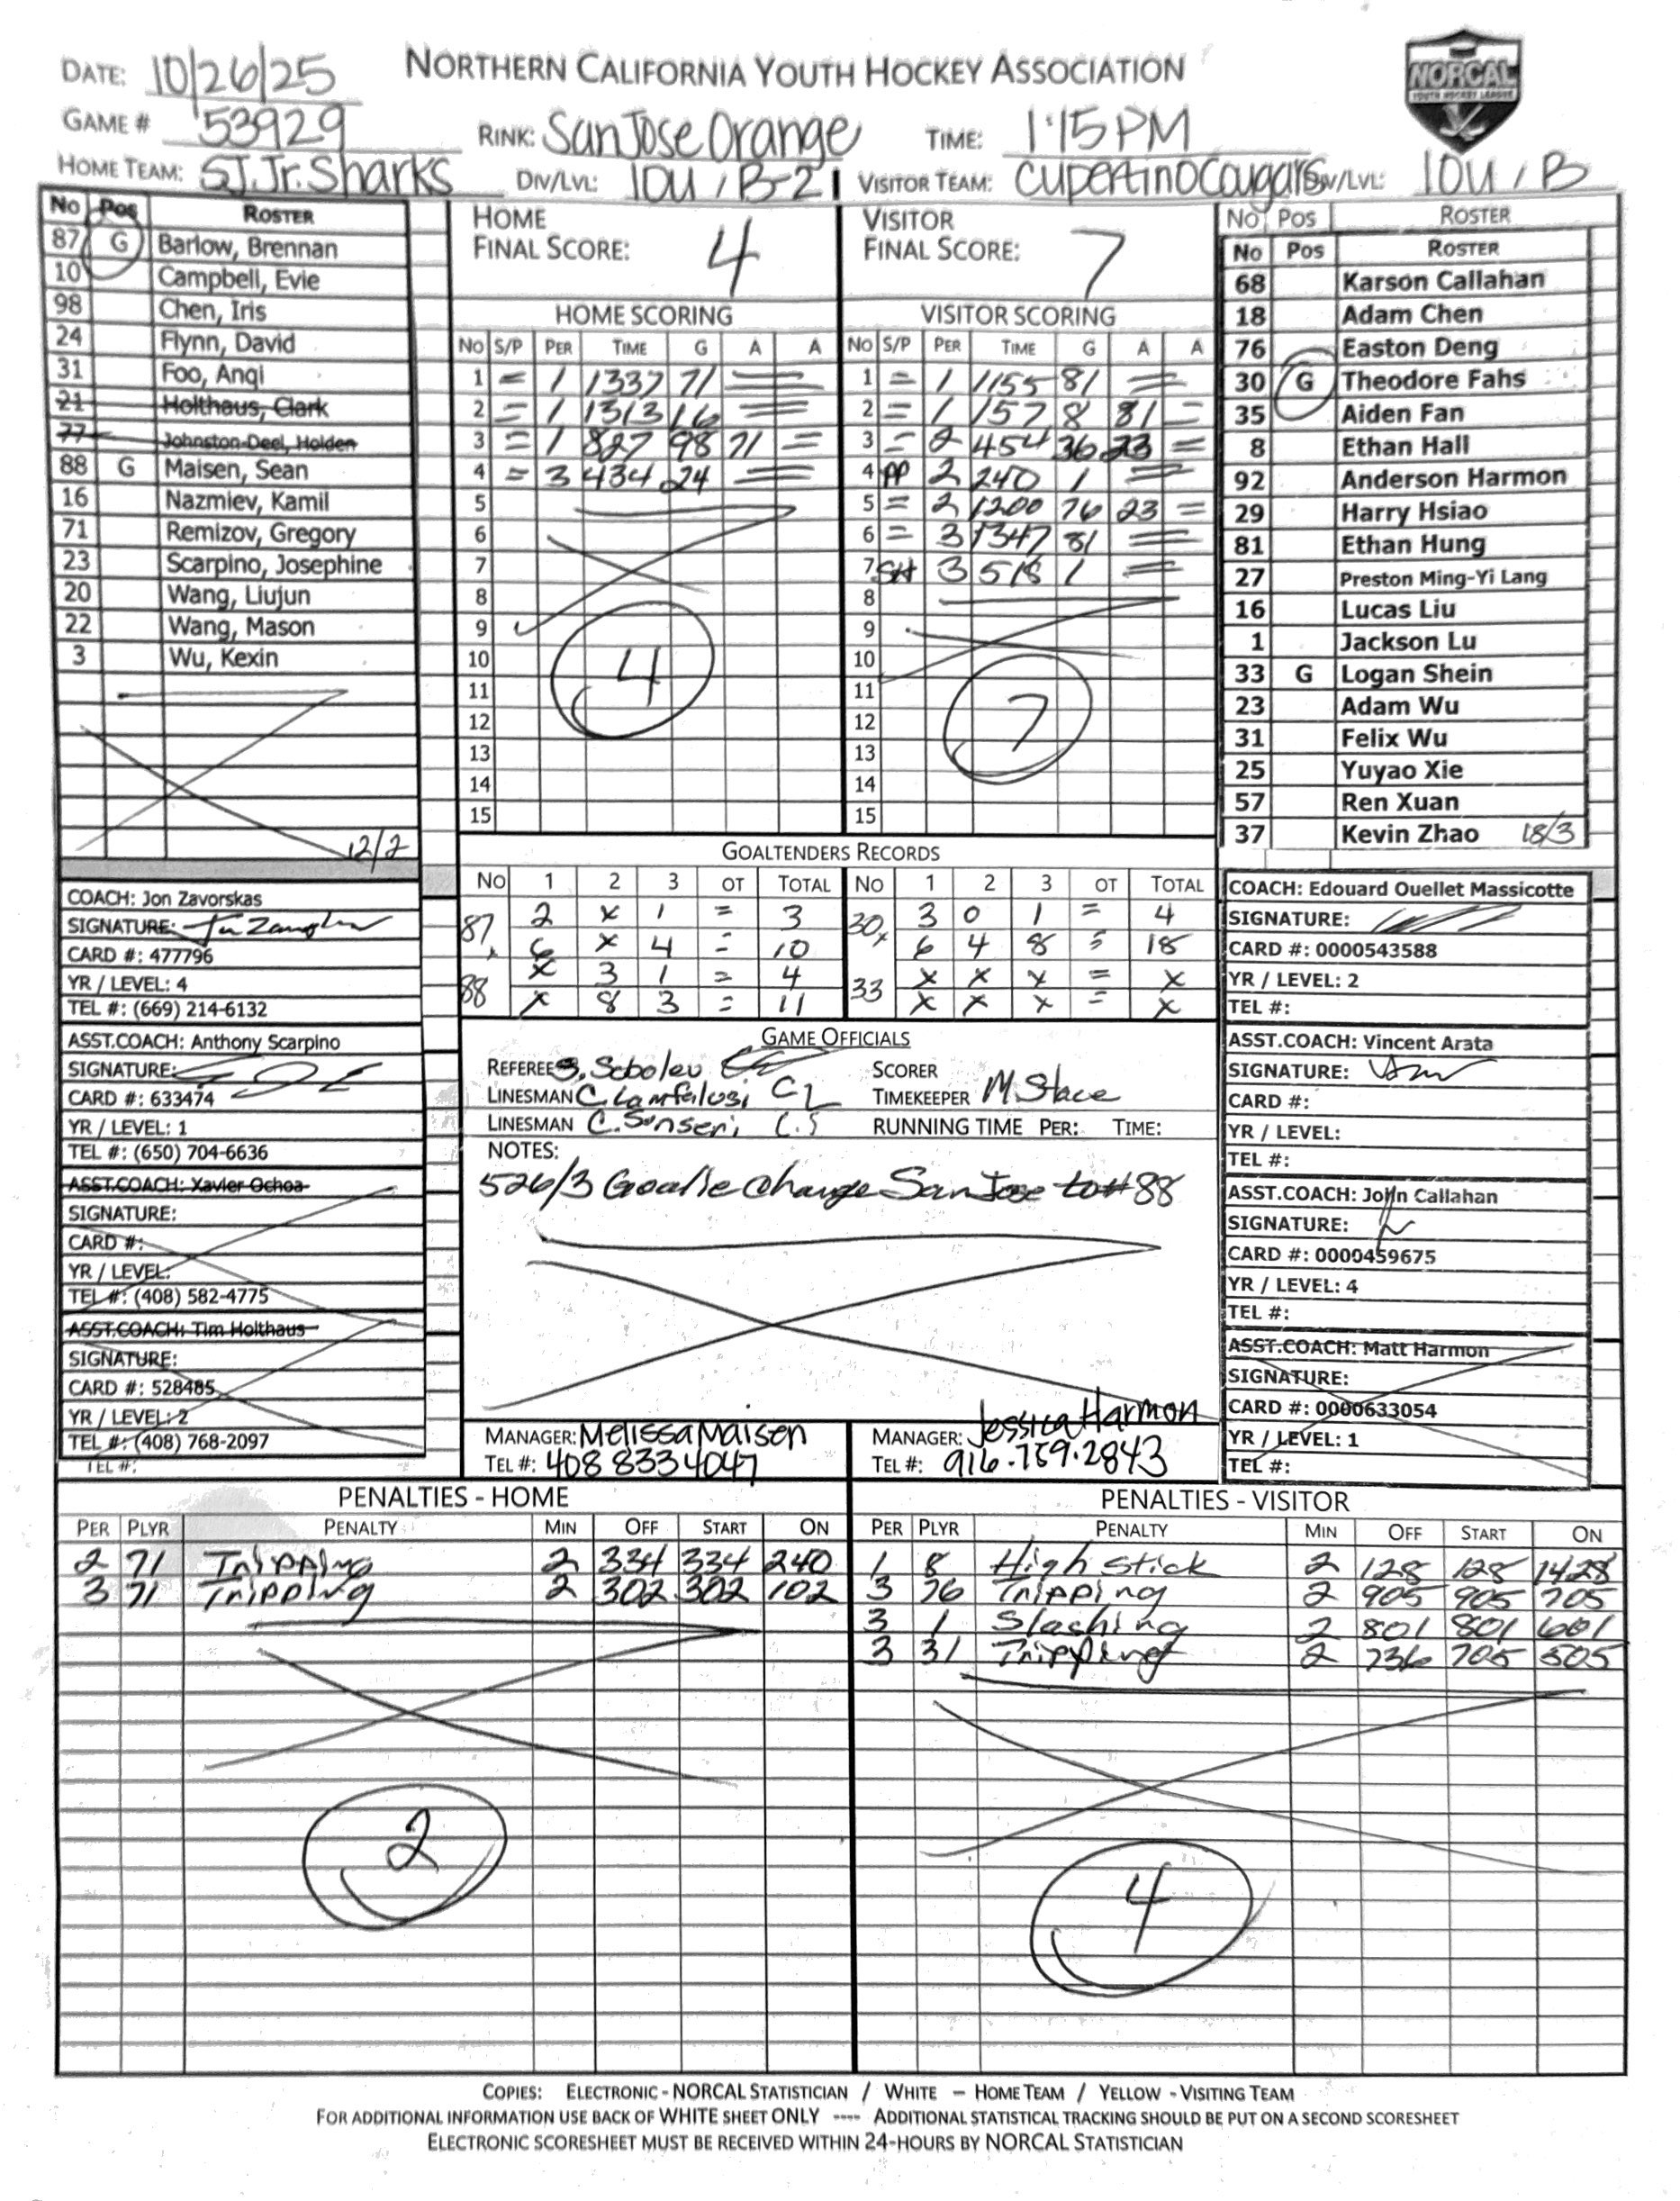 DATE: 10/26/25 NORTHERN CALIFORNIA YOUTH HOCKEY ASSOCIATION
NORCAL
YOUTH HOCKEY LEAGUE
GAME # 53929 RINK: San Jose Orange TIME: 1:15 PM
HOME TEAM: SJ. Jr. Sharks DIV/LVL: 10U / B-21 VISITOR TEAM: Cupertino Cougars DIV/LVL: 10U / B
No Pos ROSTER
87 G Barlow, Brennan
10 Campbell, Evie
98 Chen, Iris
24 Flynn, David
31 Foo, Anqi
21 Holthaus, Clark
77 Johnston-Deel, Holden
88 G Maisen, Sean
16 Nazmiev, Kamil
71 Remizov, Gregory
23 Scarpino, Josephine
20 Wang, Liujun
22 Wang, Mason
3 Wu, Kexin
12/2
HOME
FINAL SCORE: 4
HOME SCORING
No S/P PER TIME G A A
1 = 1 1337 71 =
2 = 1 1313 16 =
3 = 1 827 98 71 =
4 = 3 434 24 =
5
6
7
8
9
10
11
12
13
14
15
4
VISITOR
FINAL SCORE: 7
VISITOR SCORING
No S/P PER TIME G A A
1 = 1 1155 81 =
2 = 1 157 8 81 =
3 = 2 454 36 23 =
4 PP 2 240 1 =
5 = 2 1200 76 23 =
6 = 3 1347 81 =
7 SH 3 518 1 =
8
9
10
11
12
13
14
15
7
No Pos ROSTER
No Pos ROSTER
68 Karson Callahan
18 Adam Chen
76 Easton Deng
30 G Theodore Fahs
35 Aiden Fan
8 Ethan Hall
92 Anderson Harmon
29 Harry Hsiao
81 Ethan Hung
27 Preston Ming-Yi Lang
16 Lucas Liu
1 Jackson Lu
33 G Logan Shein
23 Adam Wu
31 Felix Wu
25 Yuyao Xie
57 Ren Xuan
37 Kevin Zhao 18/3
GOALTENDERS RECORDS
No 1 2 3 OT TOTAL No 1 2 3 OT TOTAL
87 2 x 1 = 3 30 3 0 1 = 4
6 x 4 = 10 6 4 8 = 18
88 x 3 1 = 4 33 x x x = x
x 8 3 = 11 x x x = x
COACH: Jon Zavorskas
SIGNATURE:
CARD #: 477796
YR / LEVEL: 4
TEL #: (669) 214-6132
ASST.COACH: Anthony Scarpino
SIGNATURE:
CARD #: 633474
YR / LEVEL: 1
TEL #: (650) 704-6636
ASST.COACH: Xavier Ochoa
SIGNATURE:
CARD #:
YR / LEVEL:
TEL #: (408) 582-4775
ASST.COACH: Tim Holthaus
SIGNATURE:
CARD #: 528485
YR / LEVEL: 2
TEL #: (408) 768-2097
TEL #:
GAME OFFICIALS
REFEREE S. Sobolev SCORER
LINESMAN C. Lamfalusi CL TIMEKEEPER M Stace
LINESMAN C. Sunseri C.S RUNNING TIME PER: TIME:
NOTES:
526/3 Goalie Change San Jose to #88
MANAGER: Melissa Maisen
TEL #: 408 833 4047
MANAGER: Jessica Harmon
TEL #: 916.759.2843
COACH: Edouard Ouellet Massicotte
SIGNATURE:
CARD #: 0000543588
YR / LEVEL: 2
TEL #:
ASST.COACH: Vincent Arata
SIGNATURE:
CARD #:
YR / LEVEL:
TEL #:
ASST.COACH: John Callahan
SIGNATURE:
CARD #: 0000459675
YR / LEVEL: 4
TEL #:
ASST.COACH: Matt Harmon
SIGNATURE:
CARD #: 0000633054
YR / LEVEL: 1
TEL #:
PENALTIES - HOME
PER PLYR PENALTY MIN OFF START ON
2 71 Tripping 2 334 334 240
3 71 Tripping 2 302 302 102
2
PENALTIES - VISITOR
PER PLYR PENALTY MIN OFF START ON
1 8 High Stick 2 128 128 1428
3 76 Tripping 2 905 905 705
3 1 Slashing 2 801 801 601
3 31 Tripping 2 736 705 505
4
COPIES: ELECTRONIC - NORCAL STATISTICIAN / WHITE – HOME TEAM / YELLOW - VISITING TEAM
FOR ADDITIONAL INFORMATION USE BACK OF WHITE SHEET ONLY ---- ADDITIONAL STATISTICAL TRACKING SHOULD BE PUT ON A SECOND SCORESHEET
ELECTRONIC SCORESHEET MUST BE RECEIVED WITHIN 24-HOURS BY NORCAL STATISTICIAN